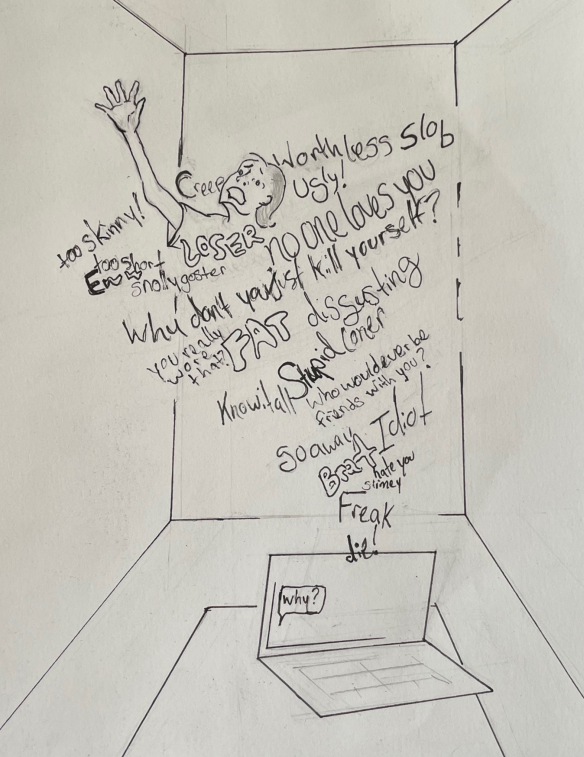 Worthless Slob
Creep
Ugly!
too skinny!
LOSER
no one loves you
too short
Eww
snollygoster
Why don't you just kill yourself?
you really
wore
that?
FAT
disgusting
Stupid
loner
Know it all
Who would ever be
friends with you?
Go away
Idiot
Brat
hate you
slimey
Freak
die!
why?